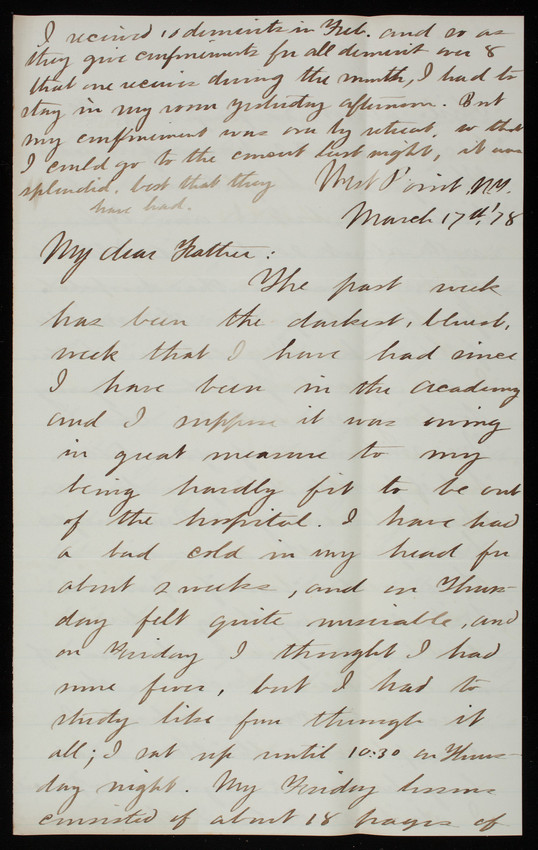 I received 10 demerits in Feb. and so as
they give confinements for all demerit over 8
that one receives during the month, I had to
stay in my room yesterday afternoon. But
my confinement was over by retreat, so that
I could go to the concert last night, it was
splendid, best that they
have had.
West Point, N.Y.
March 17th, '78
My dear Father:
The past week
has been the darkest, bluest,
week that I have had since
I have been in the Academy
and I suppose it was owing
in great measure to my
being hardly fit to be out
of the hospital. I have had
a bad cold in my head for
about 2 weeks, and on Thurs-
day felt quite miserable, and
on Friday I thought I had
some fever, but I had to
study like fun through it
all; I sat up until 10:30 on Thurs-
day night. My Friday lessons
consisted of about 18 pages of